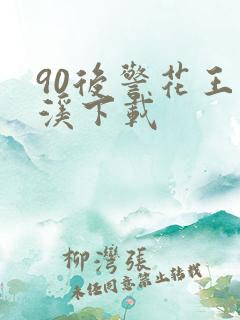 90後警花王
溪下載
柳灣張
未经同意禁止转载